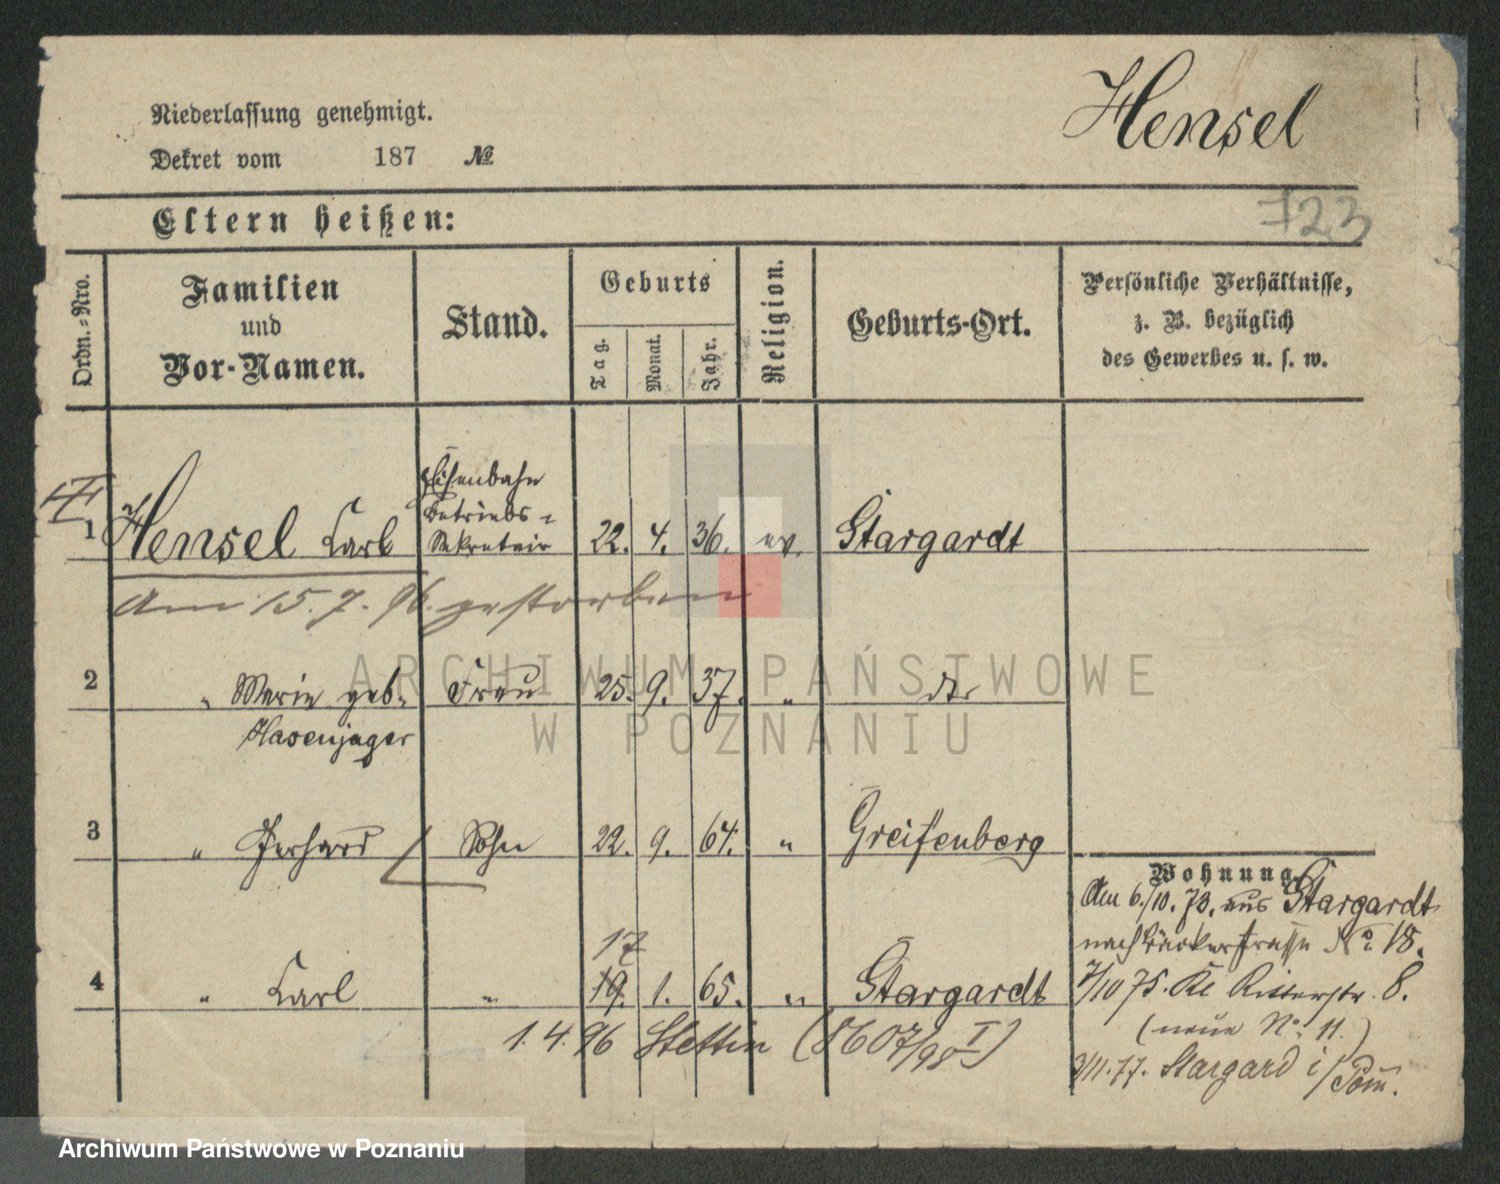 Hensel
Niederlassung genehmigt.
Dekret vom 187 №
723
Eltern heißen:
Ordn.=Nro.
Familien
und
Vor-Namen.
Stand.
Geburts
Tag.
Monat.
Jahr.
Religion.
Geburts-Ort.
Persönliche Verhältnisse,
z. B. bezüglich
des Gewerbes u. s. w.
1 Hensel Carl
Eisenbahn
Betriebs=
Sekretair
22. 4. 36. ev. Stargardt
Am 15.7.96. gestorben
2 " Marie geb. Frau 25. 9. 37. " do
Hasenjager
3 " Gerhard Sohn 22. 9. 64. " Greifenberg
17
4 " Carl " 19. 1. 65. " Stargardt
1.4.96 Stettin (8607/98 I)
Wohnung.
Am 6./10. 73. aus Stargardt
nach Bäckerstrasse No 18.
7/10 75. Kl Ritterstr. 8.
(neue No. 11.)
3/11.77. Stargard i/Pom.
ARCHIWUM PAŃSTWOWE
W POZNANIU
Archiwum Państwowe w Poznaniu